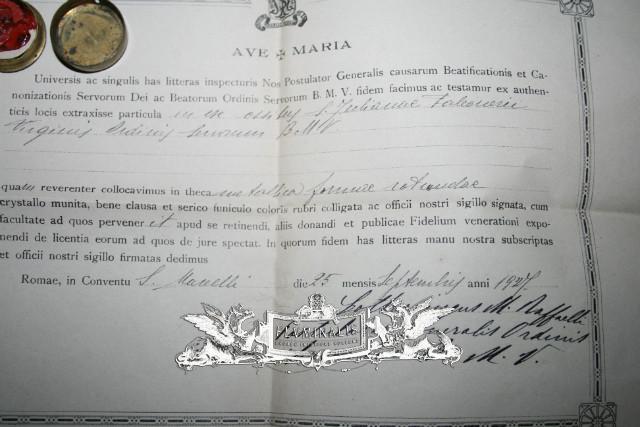 AVE ✠ MARIA
Universis ac singulis has litteras inspecturis Nos Postulator Generalis causarum Beatificationis et Ca-
nonizationis Servorum Dei ac Beatorum Ordinis Servorum B. M. V. fidem facimus ac testamur ex authen-
ticis locis extraxisse particulam ex ossibus S. Julianae Falconerii
Virginis Ordinis Servorum B.M.V.
quam reverenter collocavimus in theca metallica formae rotundae
crystallo munita, bene clausa et serico funiculo coloris rubri colligata ac officii nostri sigillo signata, cum
facultate ad quos pervenerit apud se retinendi, aliis donandi et publicae Fidelium venerationi expo-
nendi de licentia eorum ad quos de jure spectat. In quorum fidem has litteras manu nostra subscriptas
et officii nostri sigillo firmatas dedimus
Romae, in Conventu S. Marcelli die 25 mensis Septembris anni 1927
M. Raffaelli
Generalis Ordinis
M. V.